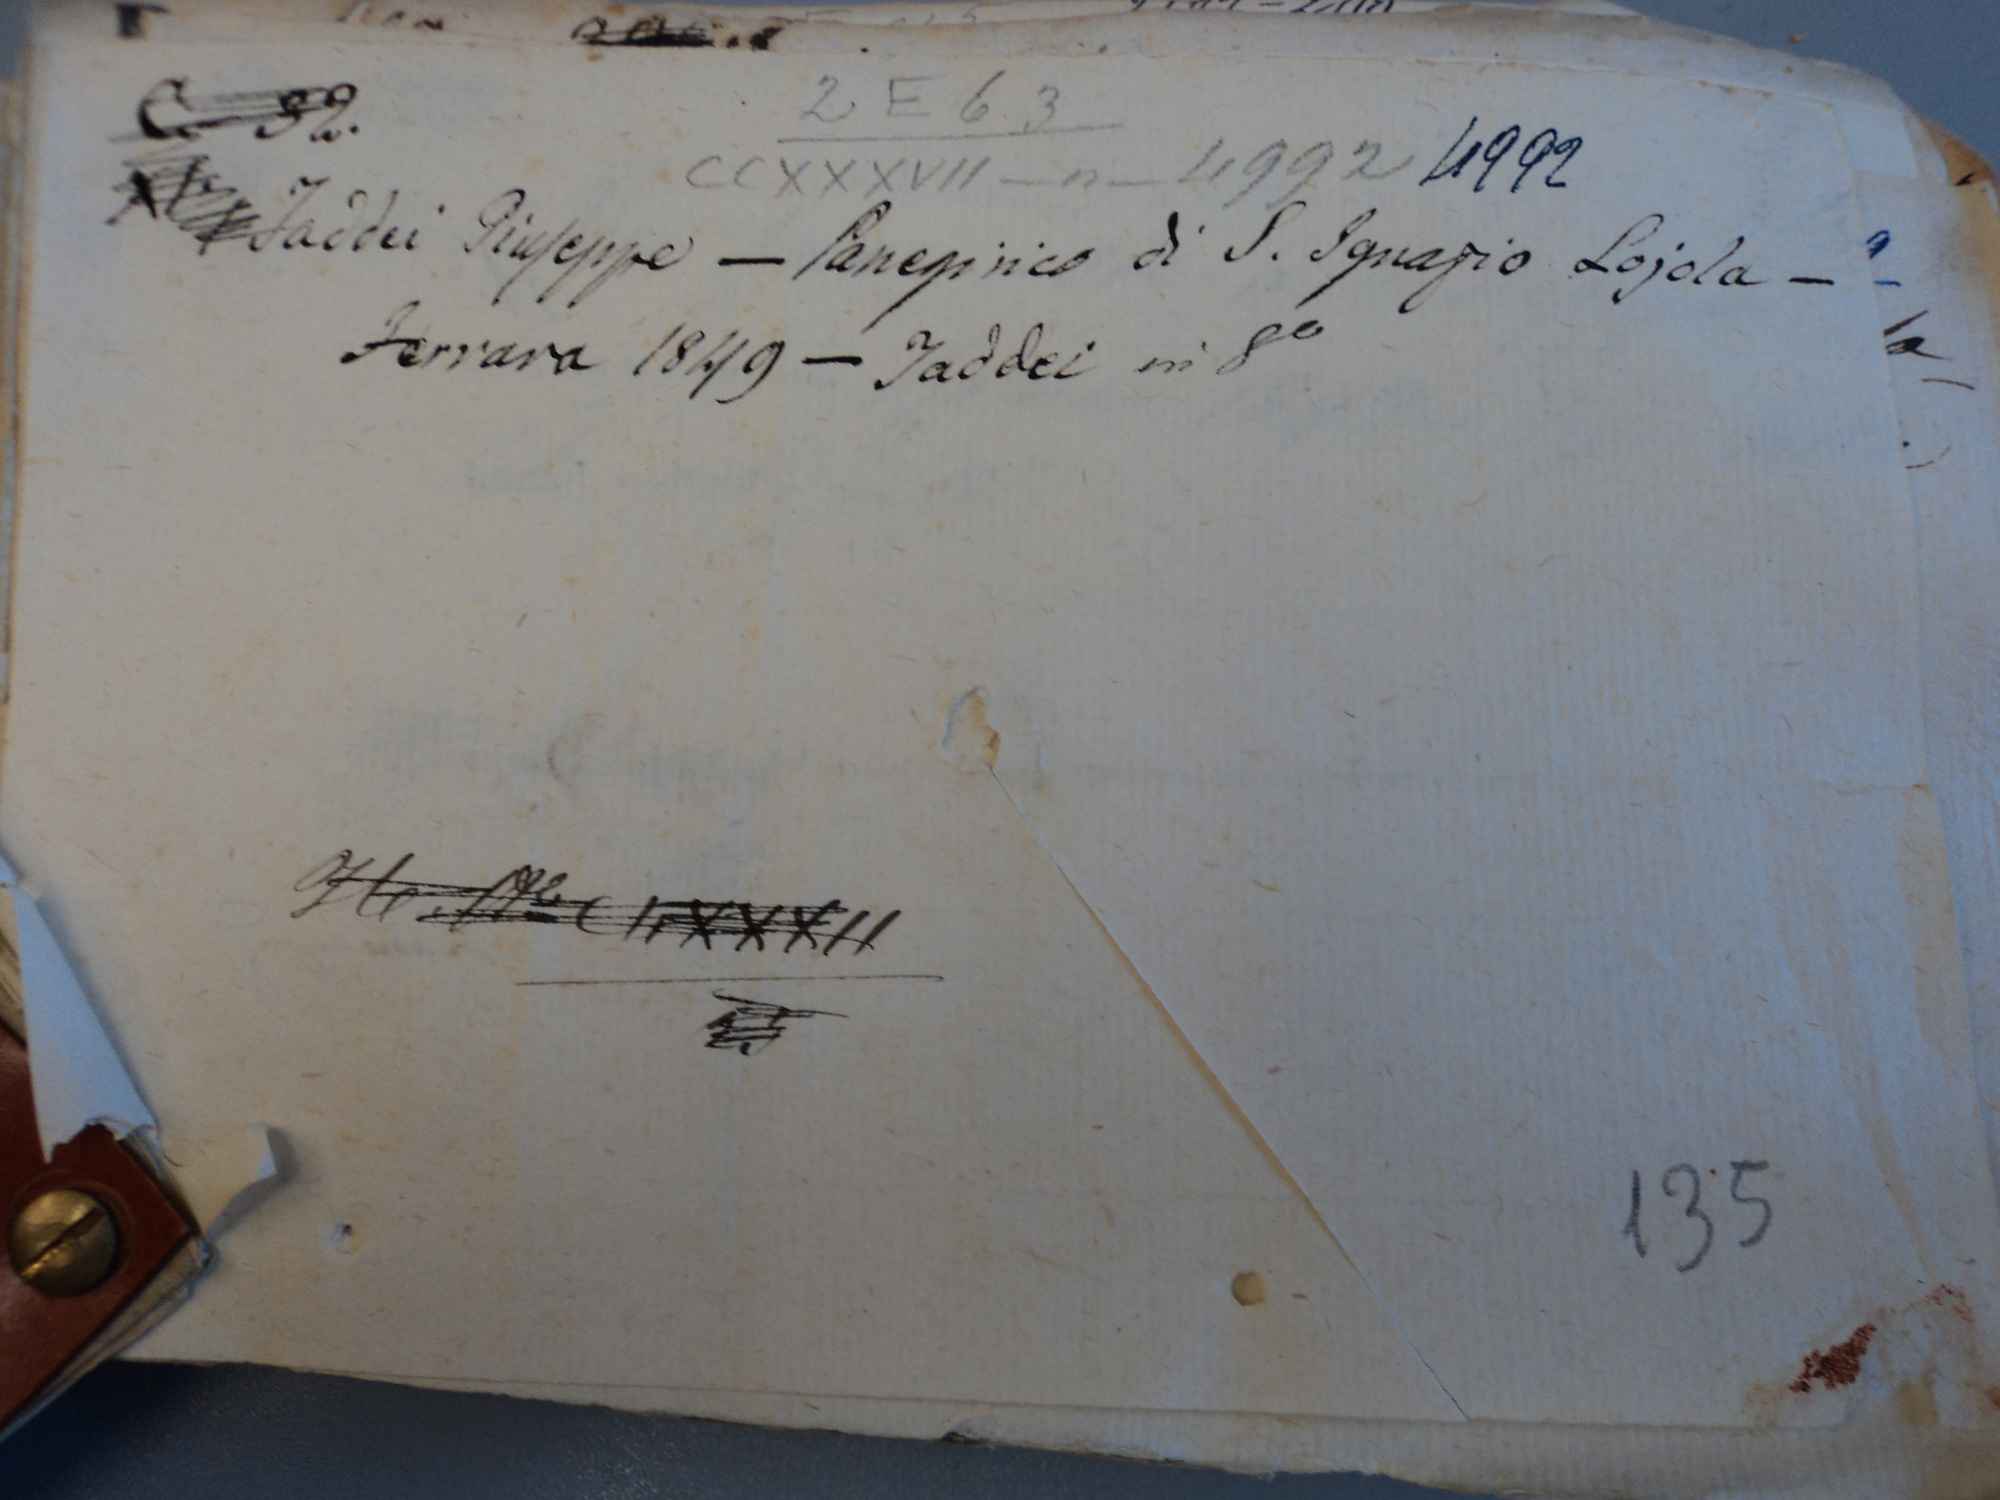 C. 32.
2 E 6.3
CCXXXVII - n - 4992 4992
Taddei Giuseppe — Panegirico di S. Ignazio Lojola —
Ferrara 1849 — Taddei in 8º
135